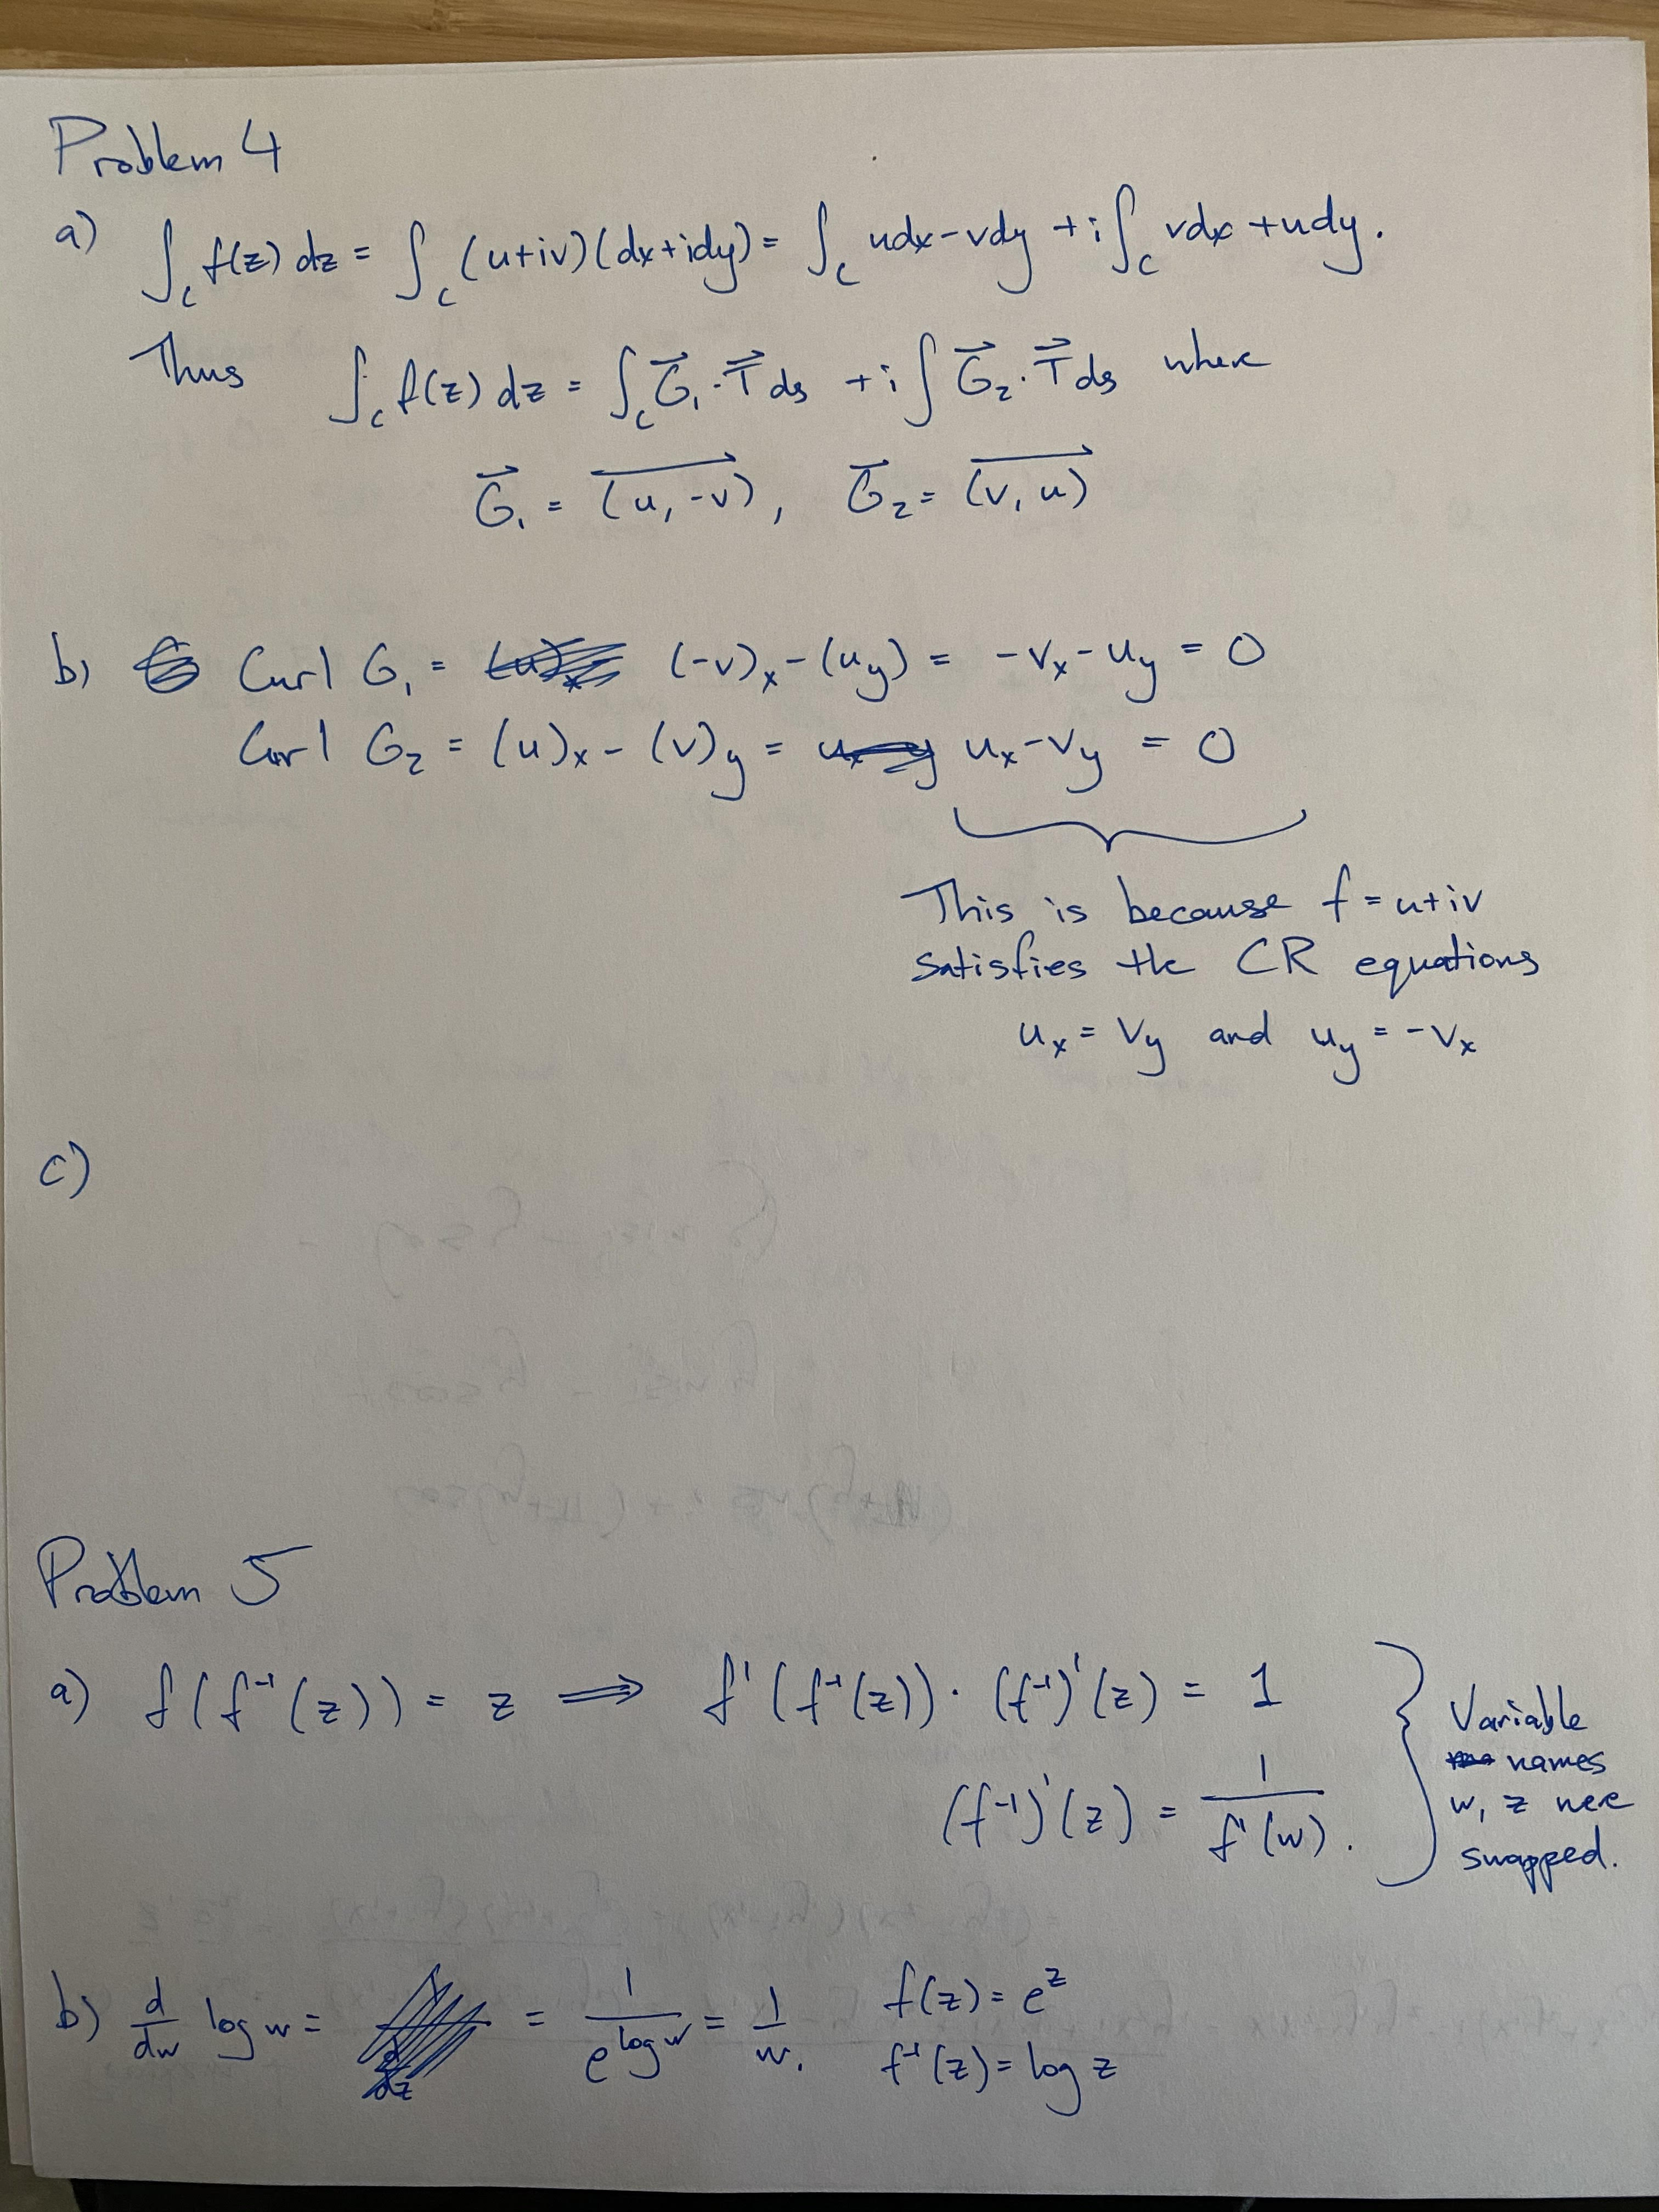 Problem 4
a) ∫_C f(z) dz = ∫_C (u+iv)(dx+idy) = ∫_C udx-vdy + i∫_C vdx+udy.
Thus ∫_C f(z) dz = ∫_C G⃗₁·T⃗ ds + i∫ G⃗₂·T⃗ ds where
G⃗₁ = (u, -v), G⃗₂ = (v, u)
b) Curl G₁ = (-v)ₓ-(u_y) = -vₓ-u_y = 0
Curl G₂ = (u)ₓ-(v)_y = uₓ-v_y = 0
This is because f = u+iv
satisfies the CR equations
uₓ = v_y and u_y = -vₓ
c)
Problem 5
a) f(f⁻¹(z)) = z ⟹ f'(f⁻¹(z))·(f⁻¹)'(z) = 1
(f⁻¹)'(z) = 1/f'(w).
Variable
names
w, z were
swapped.
b) d/dw log w = = 1/e^{log w} = 1/w. f(z) = e^z
f⁻¹(z) = log z